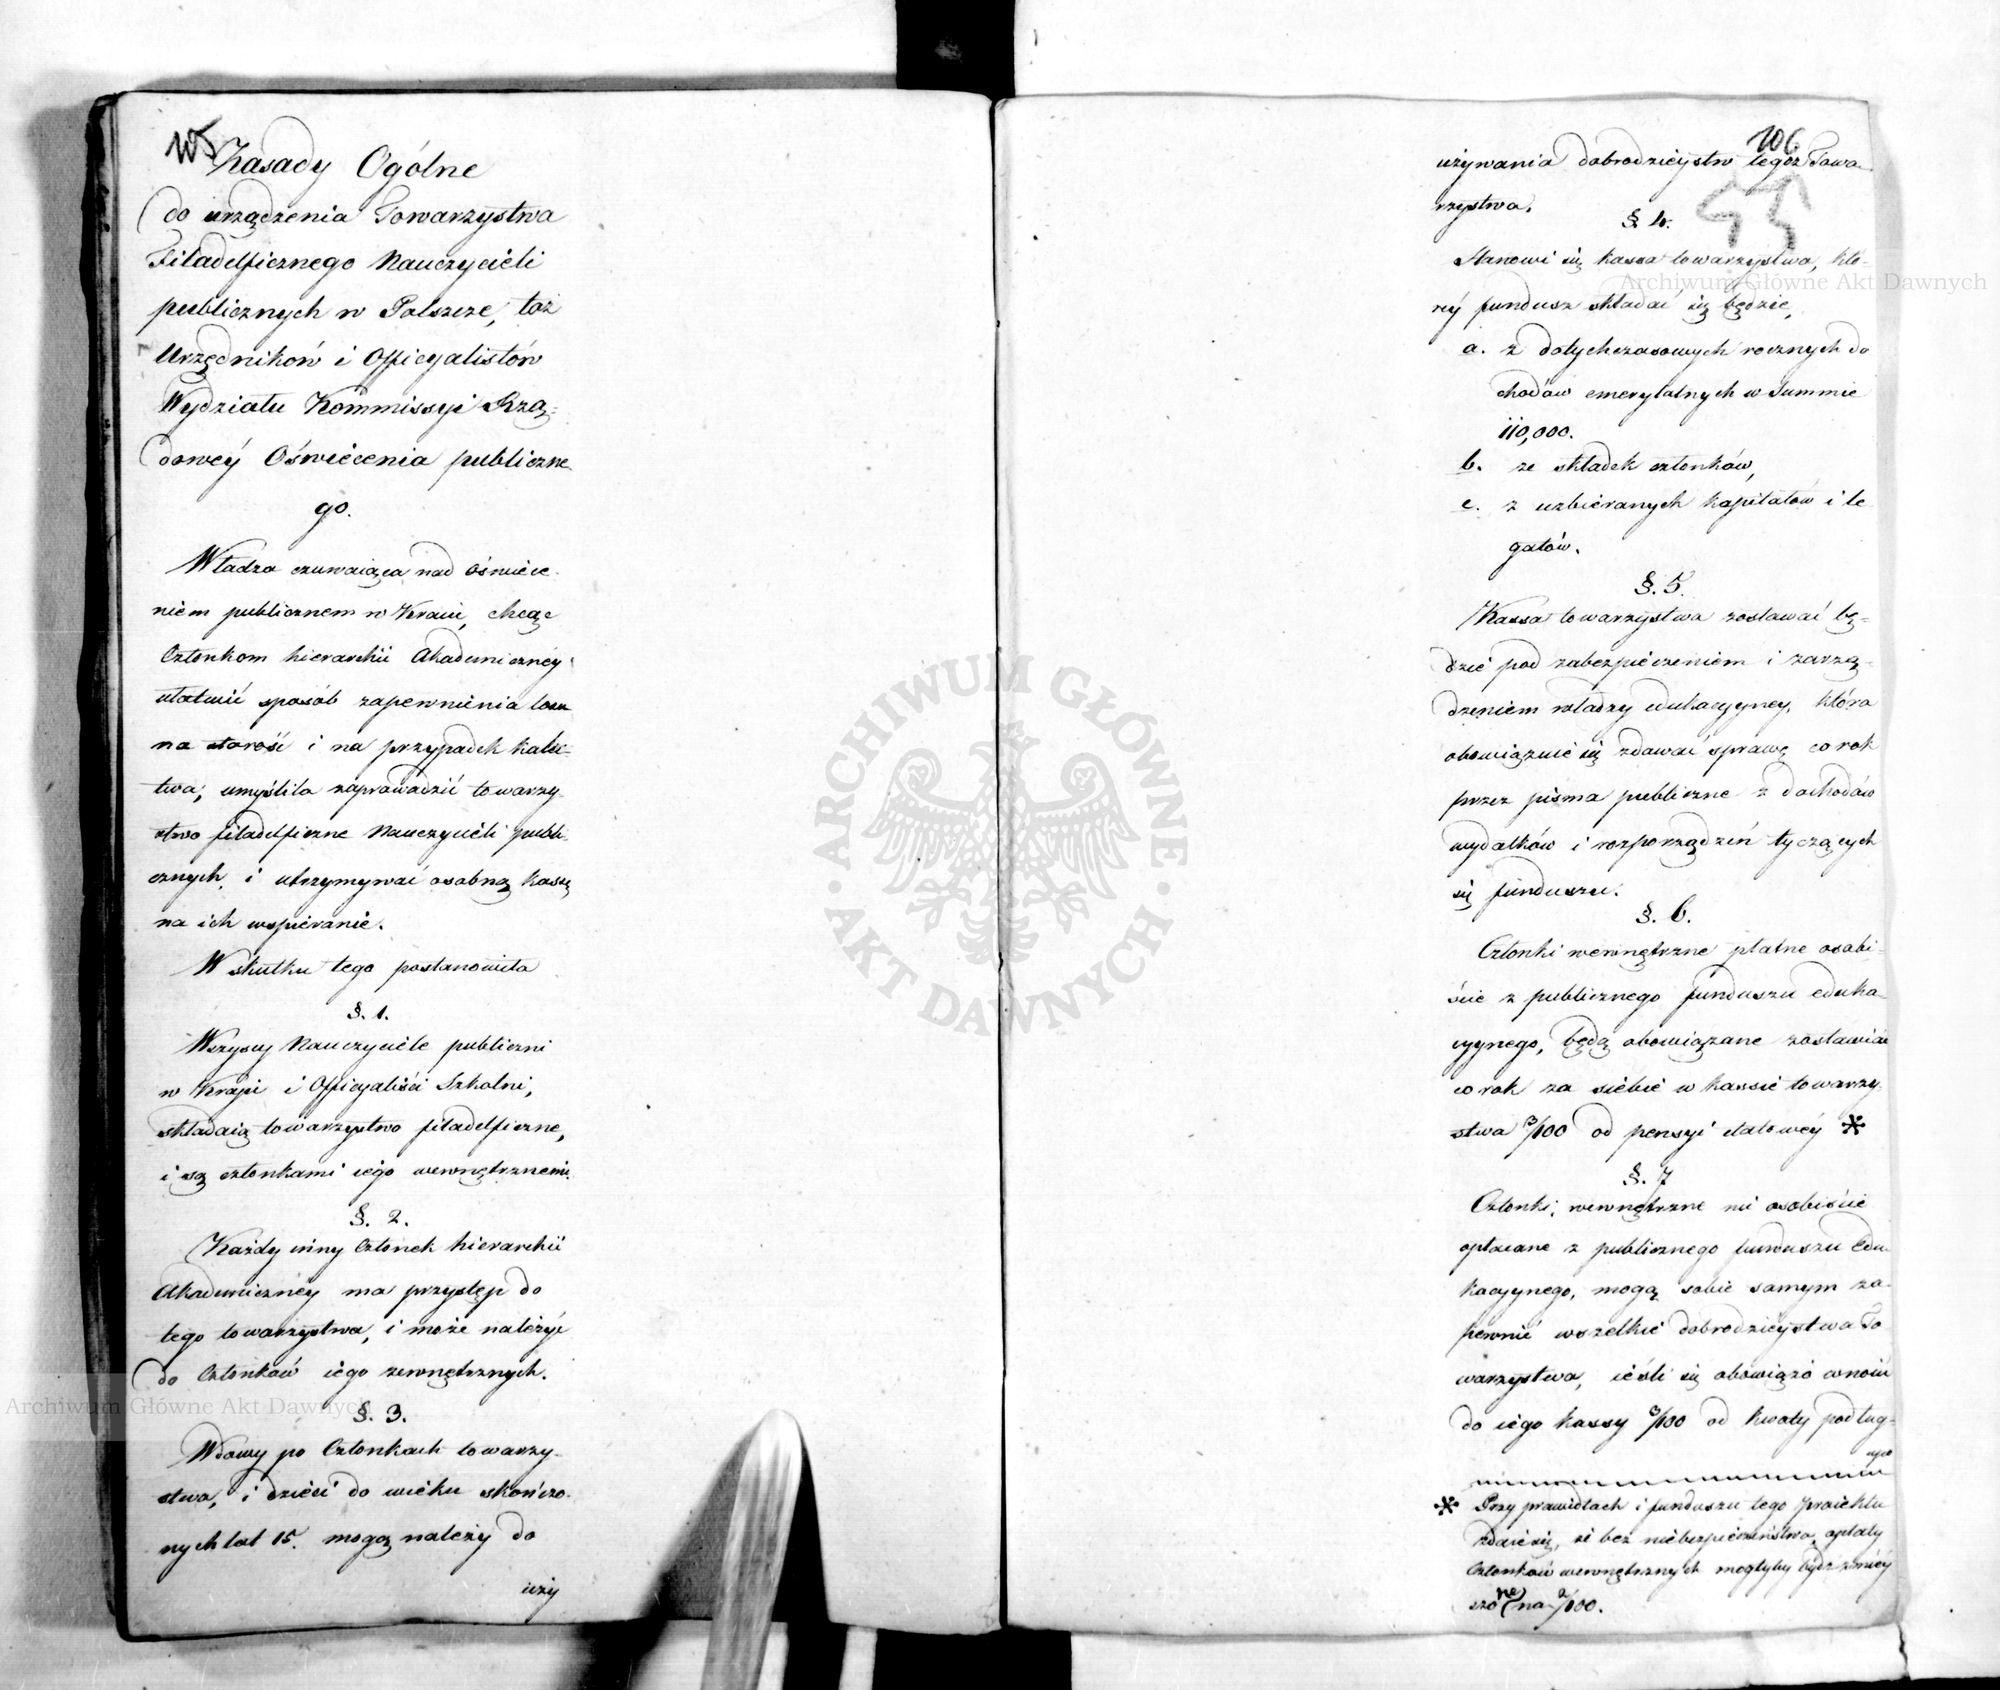 Zasady Ogólne
do urządzenia Towarzystwa
Filadelficznego Nauczycieli
publicznych w Polszcze, toż
Urzędników i Officyalistów
Wydziału Kommissyi Rzą-
dowéy Oświecenia publiczne
go.
Władza czuwaiąca nad oświece-
niem publicznem w Kraiu, chcąc
Członkom hierarchii Akademicznéy
ułatwić sposób zapewnienia losu
na starość i na przypadek kalec-
twa, umyśliła zaprowadzić towarzy-
stwo filadelficzne Nauczycieli publi-
cznych, i utrzymywać osobną kassę
na ich wspieranie.
W skutku tego postanowiła
§. 1.
Wszyscy Nauczyciele publiczni
w Kraju i Officyaliści Szkolni,
składaią towarzystwo filadelficzne,
i są członkami iego wewnętrznemi.
§. 2.
Każdy inny Członek hierarchii
Akademicznéy ma przystęp do
tego towarzystwa, i może należyć
do Członków iego zewnętrznych.
§. 3.
Wdowy po Członkach towarzy-
stwa, i dzieci do wieku skończo-
nych lat 15. mogą należy do
uży
106
używania dobrodzieystw tegoż Towa
rzystwa.
§ 4.
Stanowi się kassa towarzystwa, któ-
réy fundusz składać się będzie,
a. z dotychczasowych rocznych do
chodów emerytalnych w Summie
110,000.
b. ze składek członków,
c. z uzbieranych kapitałów i le
gatów.
§. 5.
Kassa towarzystwa zostawać bę-
dzie pod zabezpieczeniem i zarzą-
dzeniem władzy edukacyyney, która
obowiązuie się zdawać sprawę co rok
przez pisma publiczne z dochodów
wydatków i rozporządzeń tyczących
się funduszu.
§. 6.
Członki wewnętrzne płatne osobi-
ście z publicznego funduszu eduka-
cyynego, będą obowiązane zostawiać
co rok za siebie w kassie towarzy-
stwa 3/100 od pensyi etatowéy *
§. 7
Członki, wewnętrzne nie osobiście
opłacane z publicznego funduszu Edu-
kacyynego, mogą sobie samym za-
pewnić wszelkie dobrodzieystwa To-
warzystwa, ieśli się obowiążą wnosić
do iego kassy 3/100 od kwoty podług-
* Przy prawidłach i funduszu tego proiektu
zdaie się, że bez niebezpieczeństwa, opłaty
Członków wewnętrznych mogłyby bydź zmniéy
szone na 2/100.
Archiwum Główne Akt Dawnych
Archiwum Główne Akt Dawnych
ARCHIWUM GŁÓWNE
AKT DAWNYCH